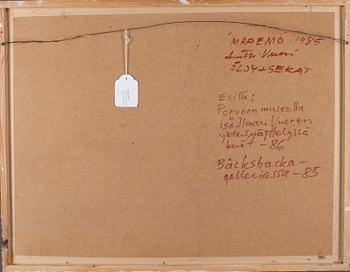 "MAREMO 1985
Antti Vuori
ÖLJY+SEKAT
Esillä:
Porvoon museolla
isä Ilmari Vuoren
yhteisnäyttelyssä
kevät -86
Bäcksbacka-
galleriassa -85